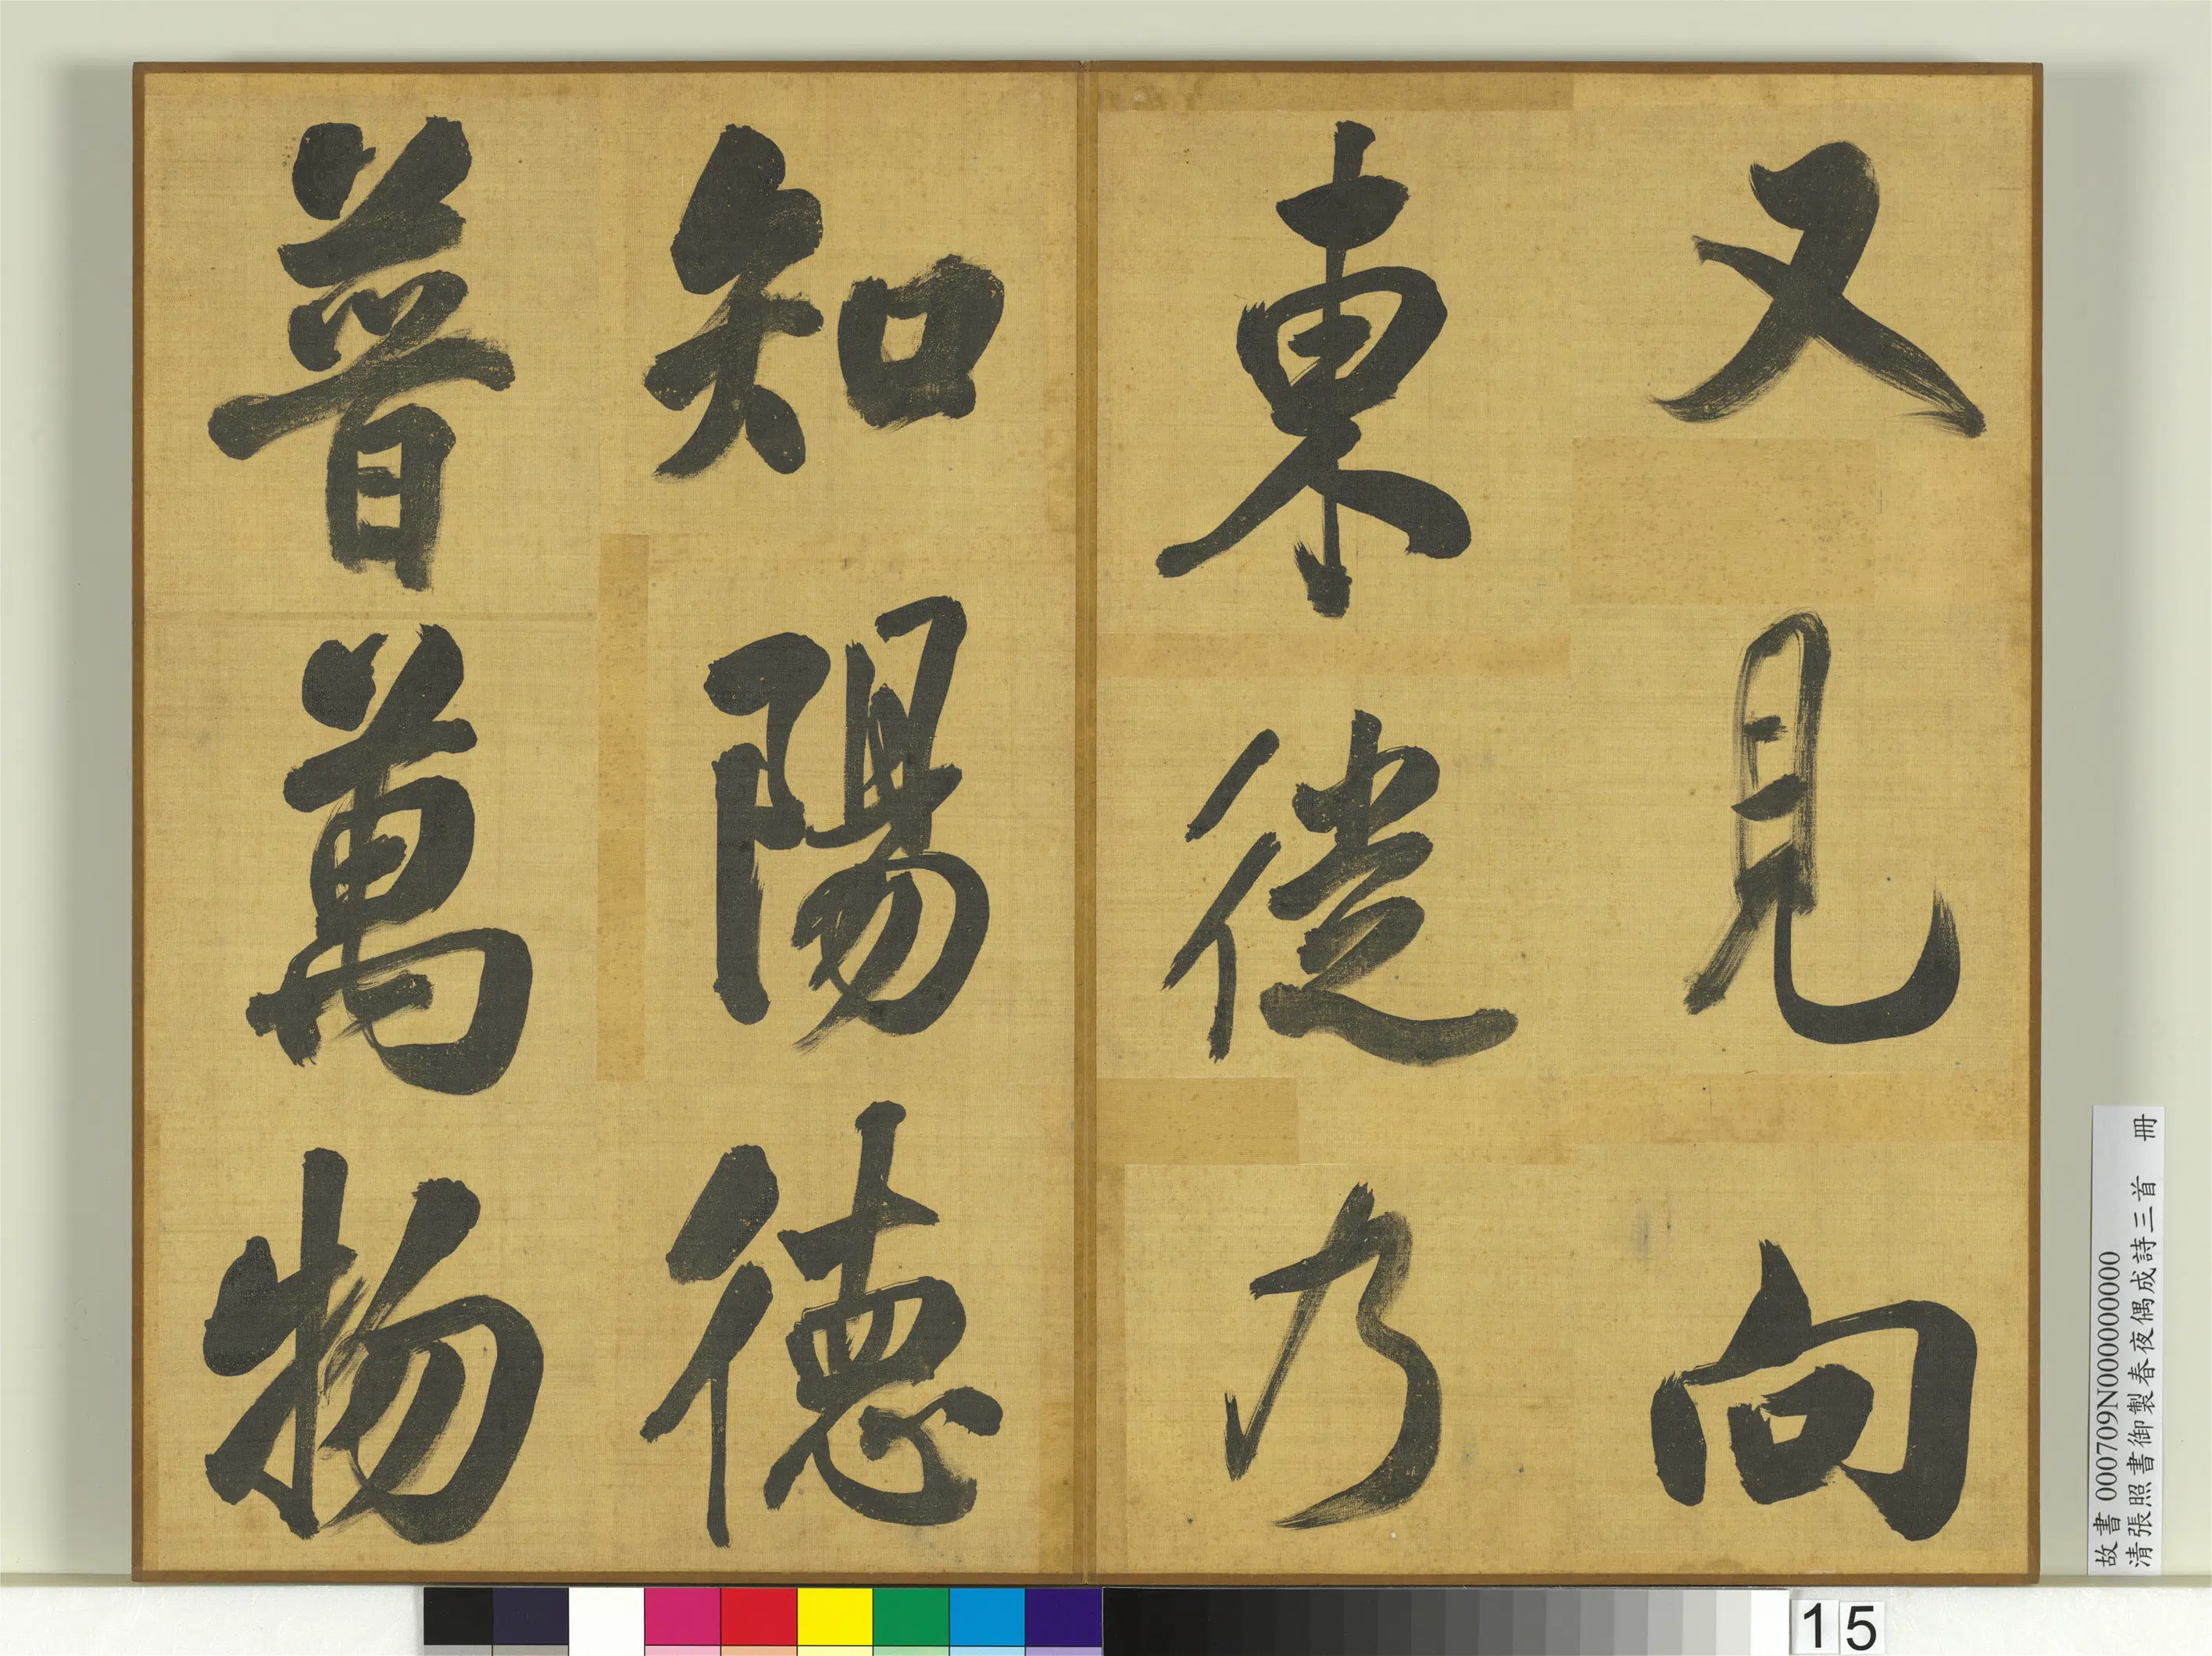 又見向
東徙乃
知陽德
普萬物
故書 000709N000000000
清張照書御製春夜偶成詩三首 冊
15